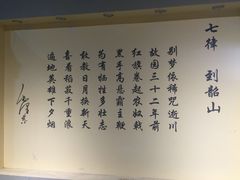 七律 到韶山
别梦依稀咒逝川
故园三十二年前
红旗卷起农奴戟
黑手高悬霸主鞭
为有牺牲多壮志
敢教日月换新天
喜看稻菽千重浪
遍地英雄下夕烟
毛泽东